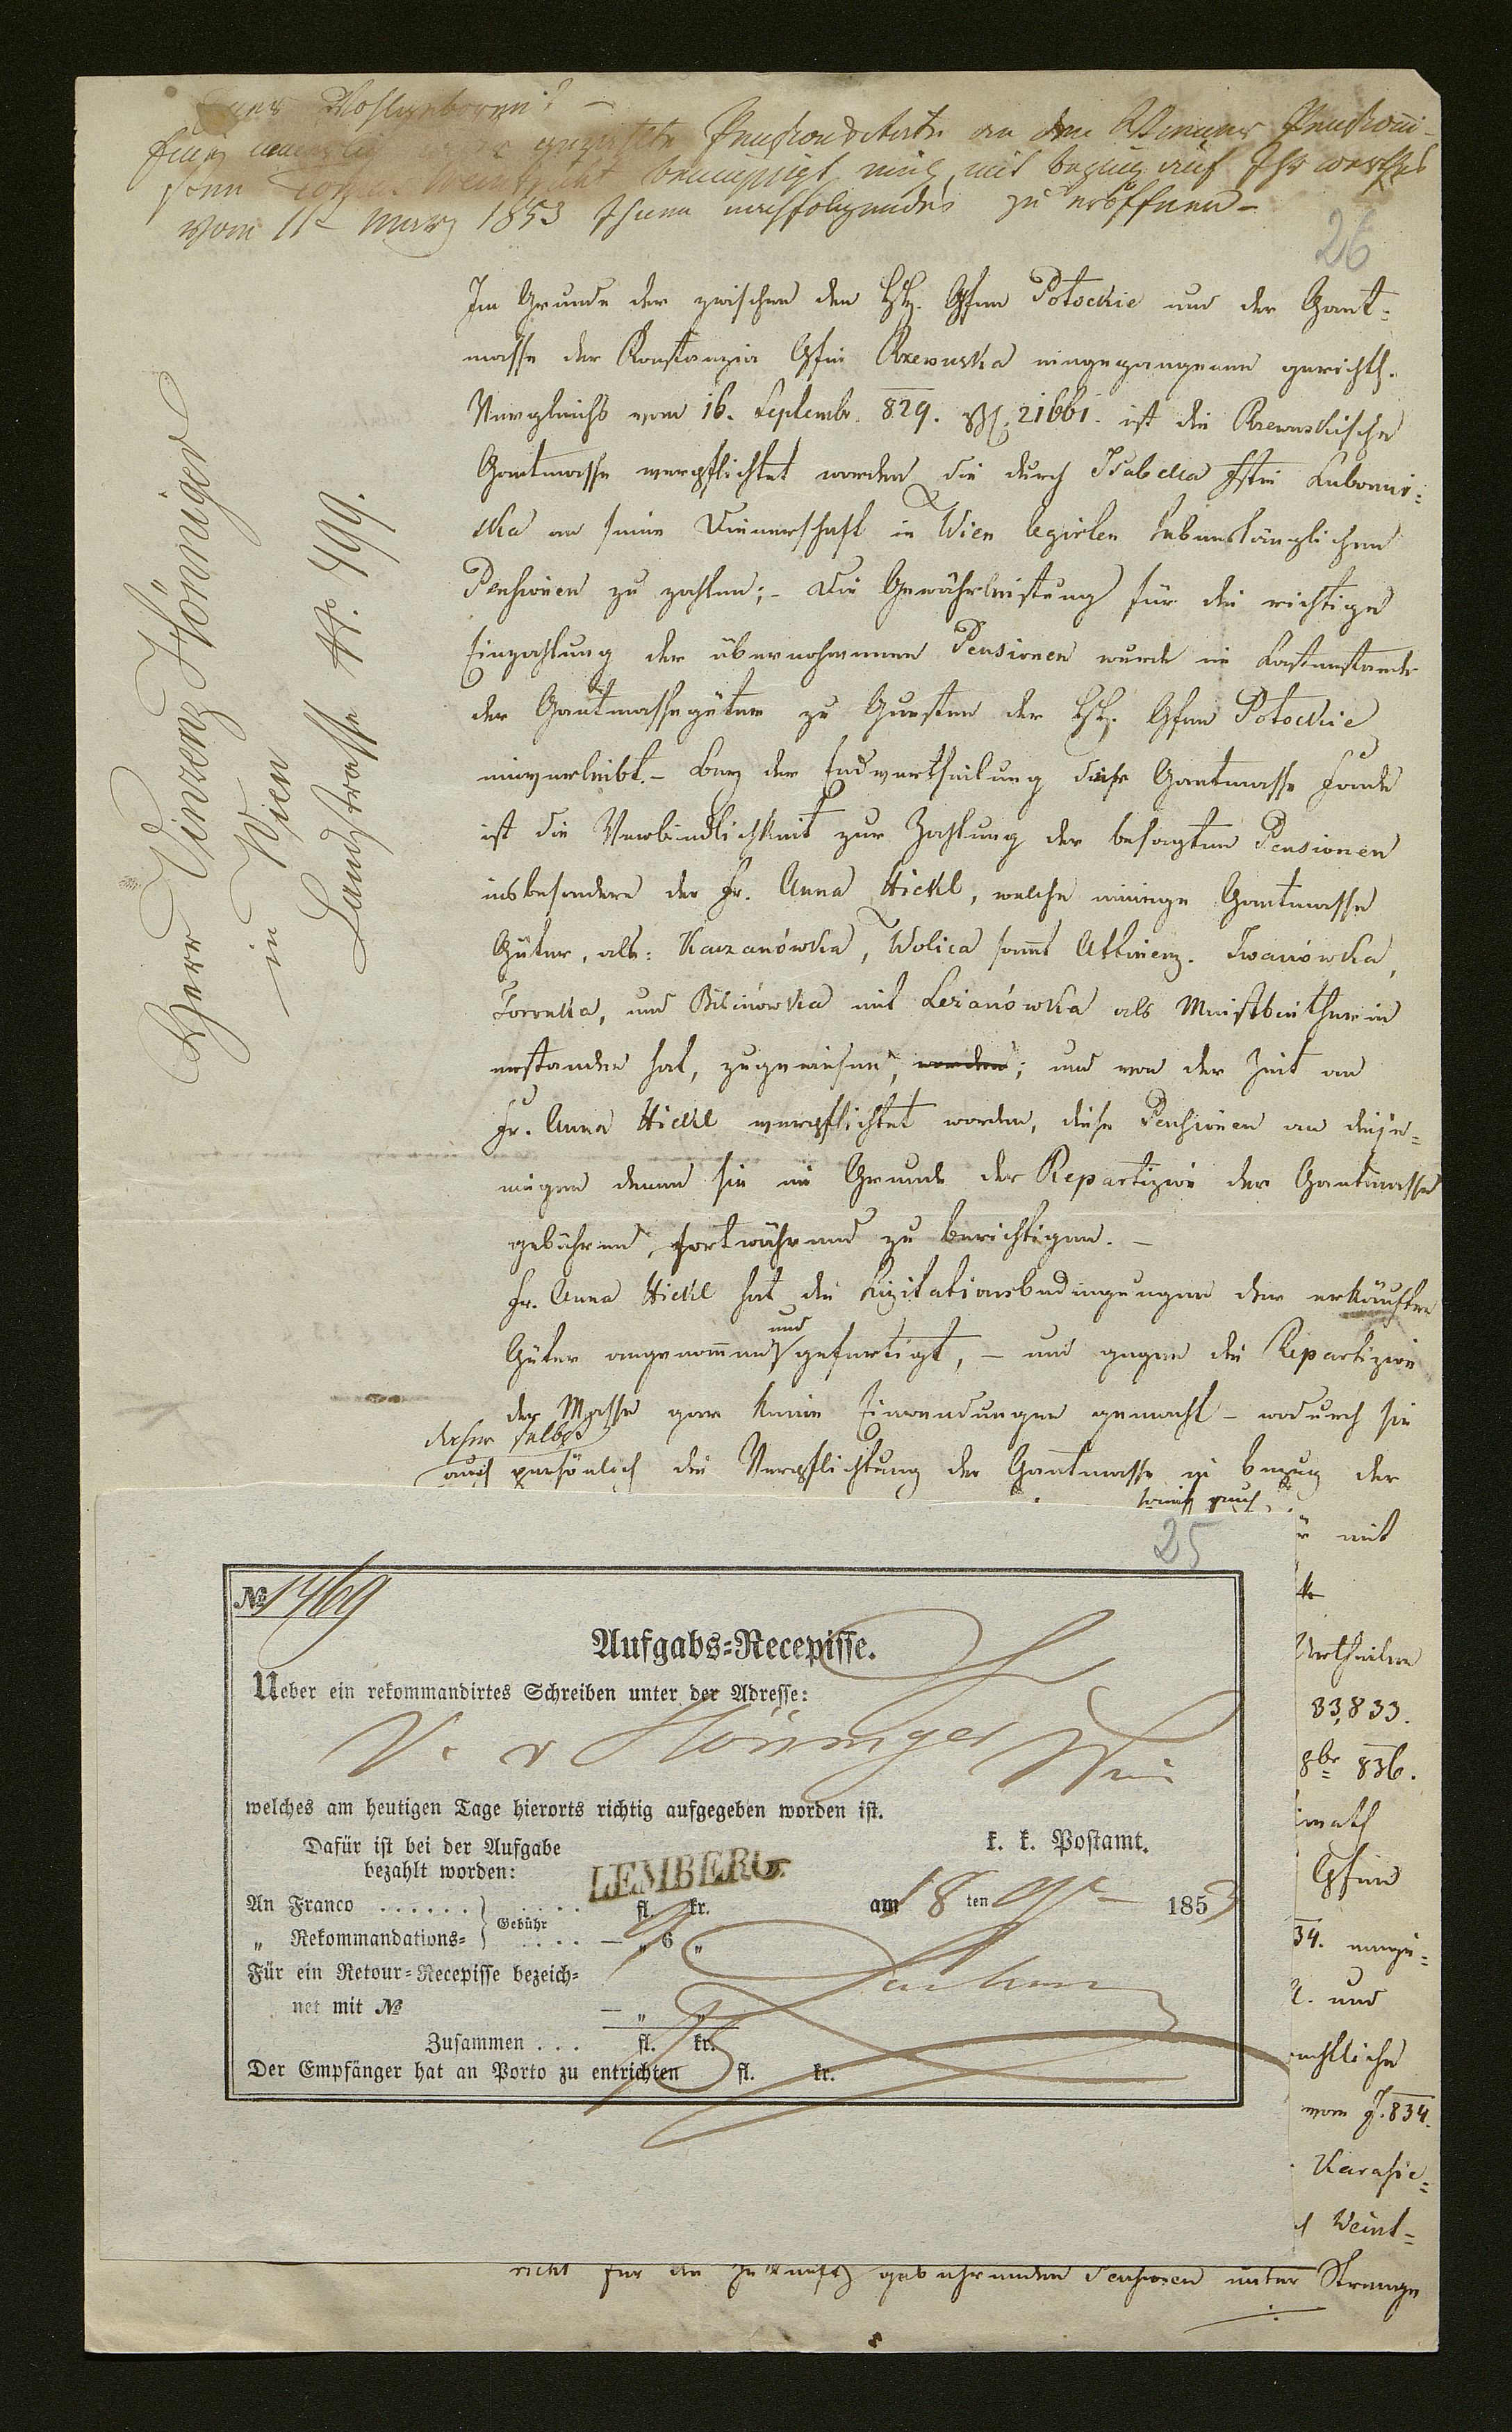 Euer Wohlgeboren! –
Pensions Akte an den Wiener Pensioni-
mit bezug auf Ihr werthes
vom 11t März 1853 Ihnen nachfolgendes zu eröffnen –
26
Im Grunde der zwischen den Gfen Potockie und der Gant-
masse der Konstanzia Gfin Rzewuska eingegangenen gerichtl.
Vergleichs vom 16. Septembr. 829. Z. 21661. ist die Rzewuskische
Gantmasse verpflichtet worden die durch Isabella Fstin Lubomir-
ska an seine Dienerschaft in Wien legirten lebenslänglichen
Pensionen zu zahlen; – Die Gewährleistung für die richtige
Einzahlung der übernohmenen Pensionen wurde im Lastenstande
der Gantmassegüter zu Gunsten der Gfen Potockie
einverleibt. – Bey der Endvertheilung dieser Gantmasse Fonde
ist die Verbindlichkeit zur Zahlung der besagten Pensionen
insbesondere der Fr. Anna Hickl, welche einige Gantmasse
Güter, als: Kaczanówka, Wolica sammt Attinenz. Iwanówka,
und Bilinówka mit Lezanówka als Meistbietherin
erstanden hat, zugewiesen, worden; und von der Zeit an
Fr. Anna Hickl verpflichtet worden, diese Pensionen an dieje-
nigen denen sie im Grunde der Repartizion der Gantmasse
gebühren fortwährend zu berichtigen. –
Fr. Anna Hickl hat die Lizitationsbedingungen der erkäuften
und
Güter angenommen gefertigt, – und gegen die Repartizion
der Masse gar keine Einwendungen gemacht – wodurch sie
selbst
auch persönlich die Verpflichtung der Gantmasse in bezug der
mit
Urtheilen
33,833.
8br 836.
Gfin
34.
und
vom J. 834.
Karasie-
Weint-
für die Zukunft gebührenden Pensionen unter Strenge
Herr Vinzenz Hönniger
in Wien
Landstrasse N. 499.
25
№ 1769
Aufgabs-Recepisse.
Ueber ein rekommandirtes Schreiben unter der Adresse:
V. v Hönniger Wien
welches am heutigen Tage hierorts richtig aufgegeben worden ist.
Dafür ist bei der Aufgabe
bezahlt worden:
k. k. Postamt.
LEMBERG
An Franco . . . . . . Gebühr . . . . fl. 9 kr.
„ Rekommandations- . . . . — „ 6 „
am 18 ten 1853
Für ein Retour-Recepisse bezeich-
net mit № — „ „
Zusammen . . . fl. 15 kr.
Der Empfänger hat an Porto zu entrichten fl. kr.